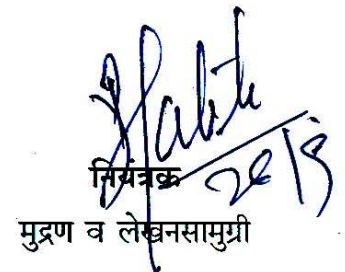 20/3
नियंत्रक
मुद्रण व लेखनसामुग्री